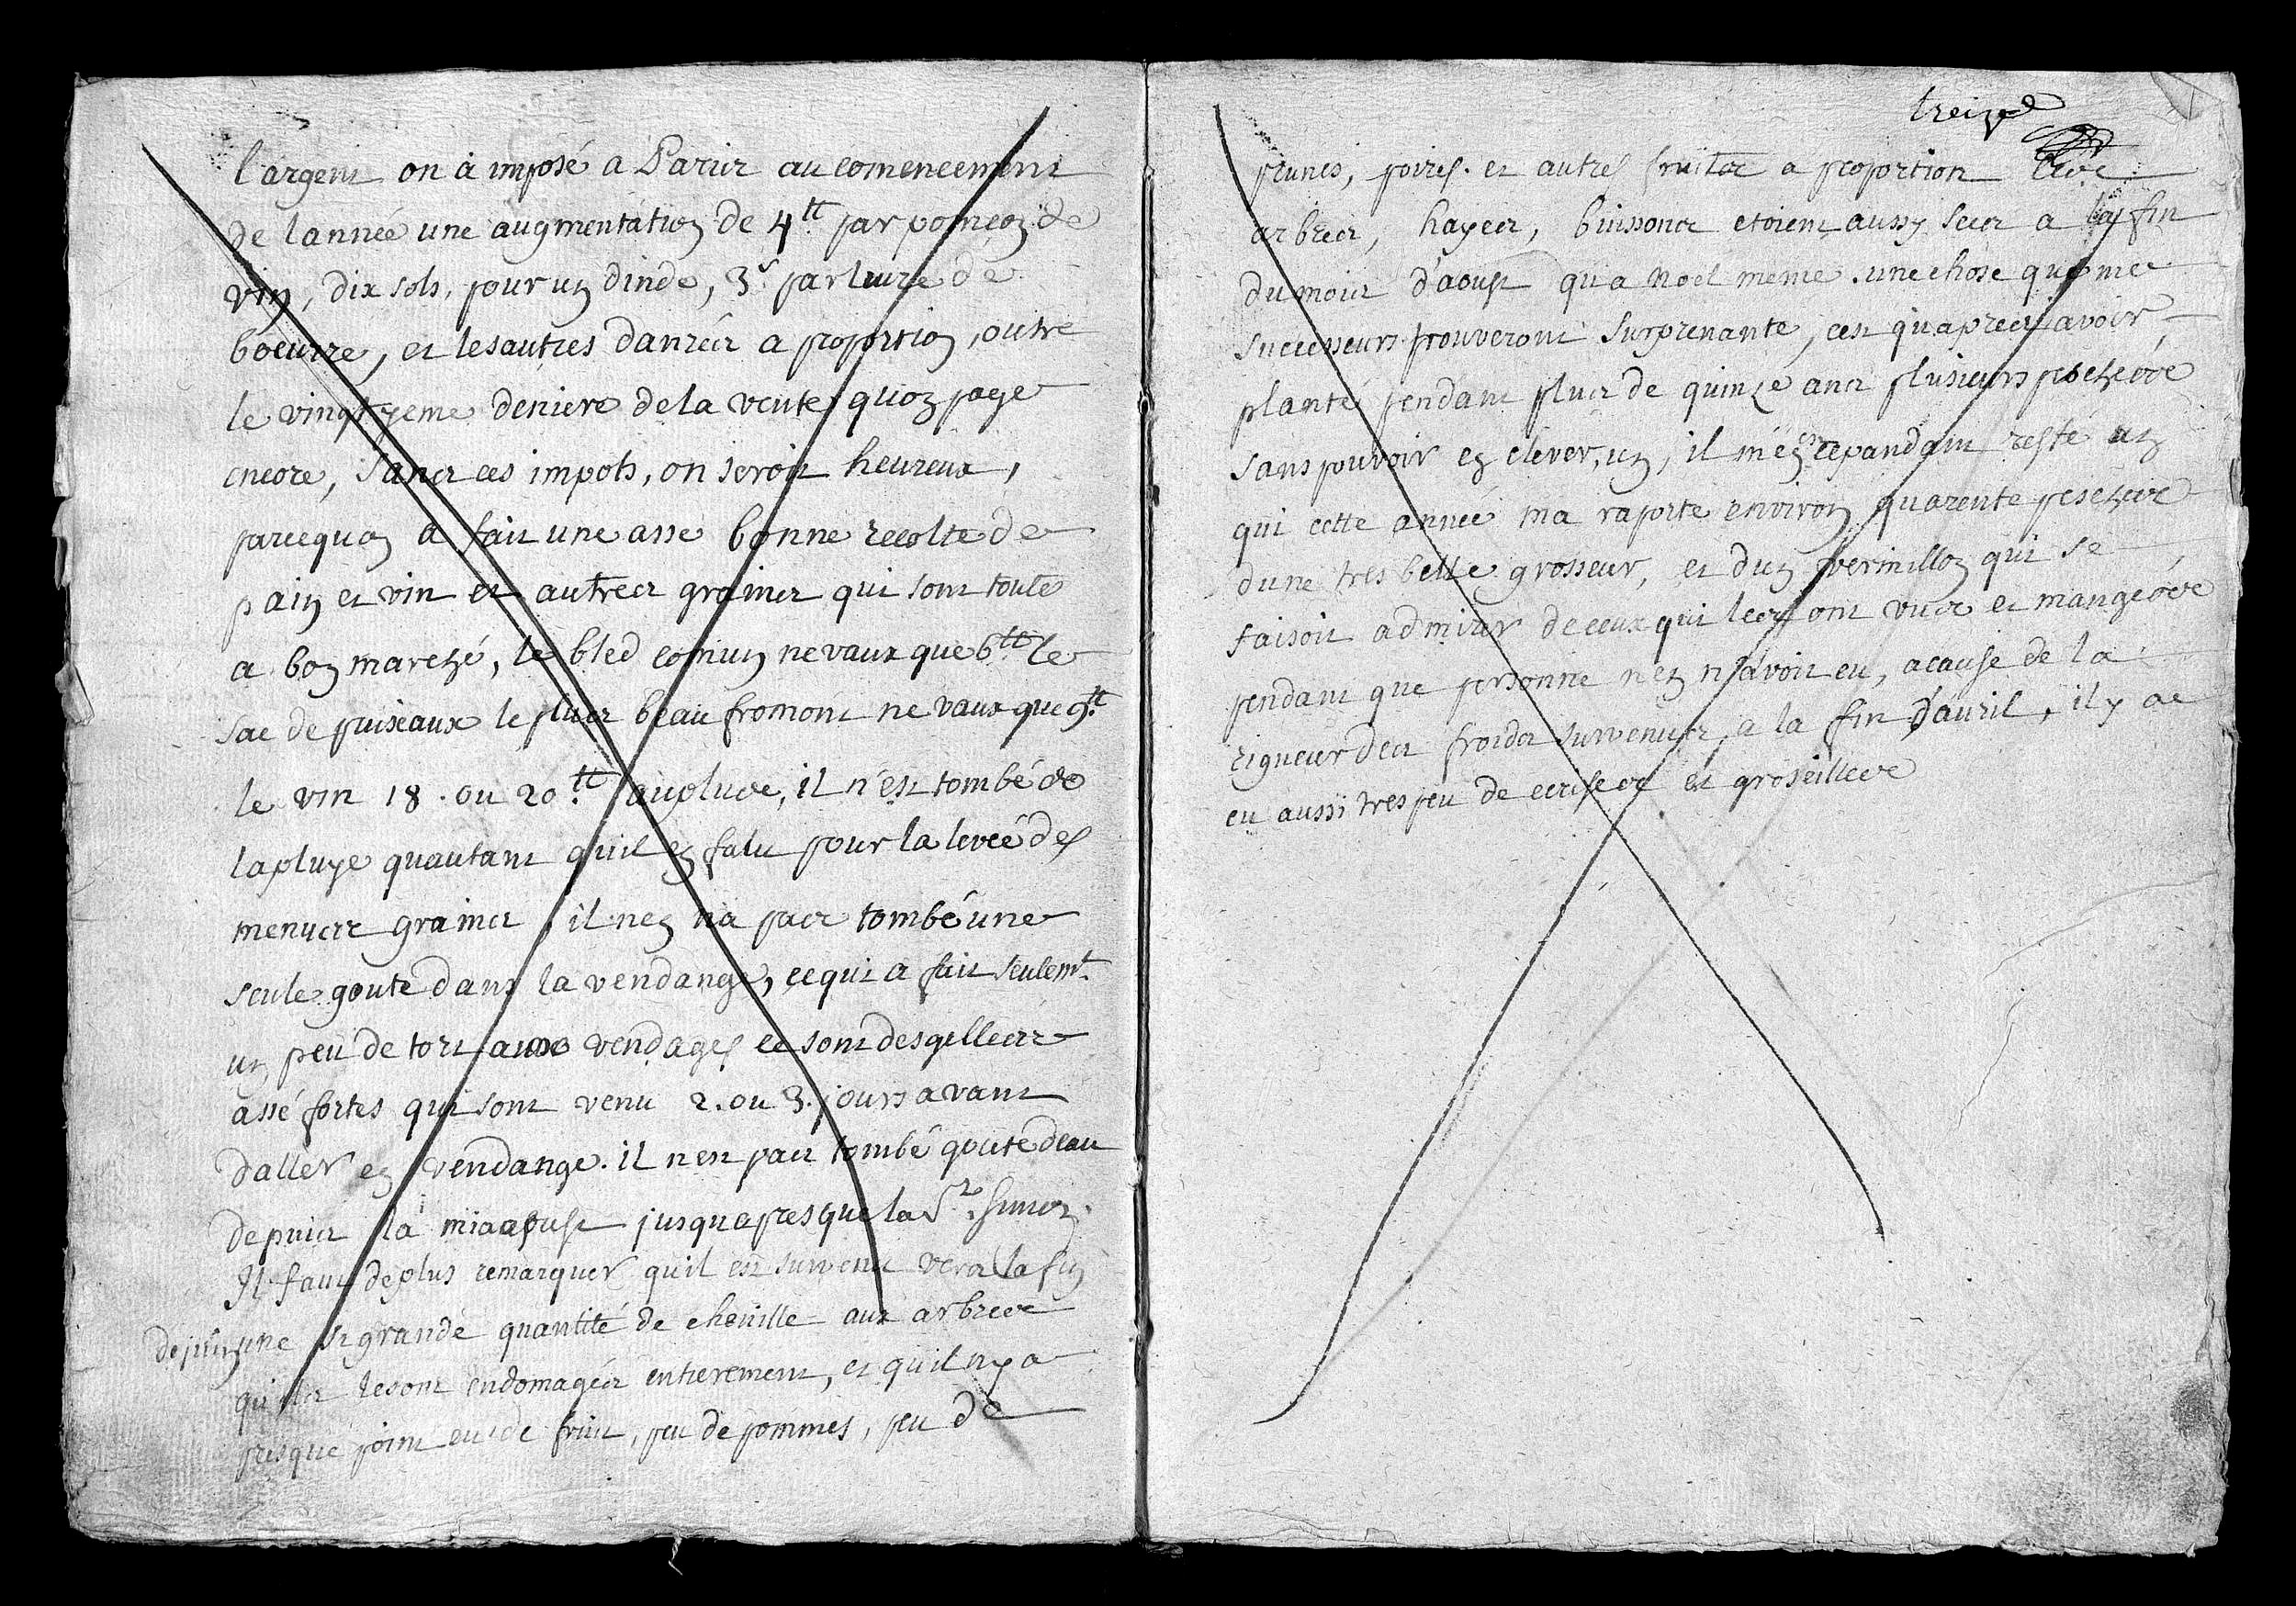 l'argent on a imposé a Paris au comencement
de lannée une augmentation de 4.tt par poinçon de
vin, dix sols, pour un dinde, 3s par livre de
boeurre, et les autres danrées a proportion, outre
le vingtyeme deniere de la vente quon paye
encore, sans ces impots, on seroit heureux,
parcequon a fait une assé bonne recolte de
pain et vin et autres graines qui sont toute
a bon marché, le bled comun ne vaux que 6tt le
sac de puiseaux le plus beau fromont ne vaux que 9tt
le vin 18. ou 20.tt au plus, il n'est tombé de
la pluye quautant quil en falu pour la levée des
menues graines, il nen na pas tombé une
seule goute dans la vendange, ce qui a fait seulemt.
un peu de tort aux vendages ce sont des gellées
assé fortes qui sont venu 2. ou 3. jours avant
daller en vendange. il nest pas tombé goute deau
depuis la mi aoust jusquapres que la St. Simon.
Il faut de plus remarquer quil est survenu vers la fin
de juin une si grande quantité de chenille aux arbres
quils le sont endomagés entierement, et quil ny a
presque point eu de fruit, peu de pommes, peu de
treize
prunes, poires. et autres fruits a proportion les
arbres, hayes, buissons etoient aussy secs a la fin
du mois d'aoust qu'a noel meme. une chose que mes
successeurs trouveront surprenante, cest quapres avoir
planté pendant plus de quinze ans plusieurs pechers
sans pouvoir en elever, un, il m'en est cepandant resté un
qui cette année ma raporté environ quarente pesches
dune tres belle grosseur, et dun vermillon qui se
faisoit admirer de ceux qui les ont vues et mangées
pendant que personne n'en n'avoit eu, acause de la
rigueur des froids survenus a la fin d'avril, il y a
eu aussi tres peu de cerises et groseilles